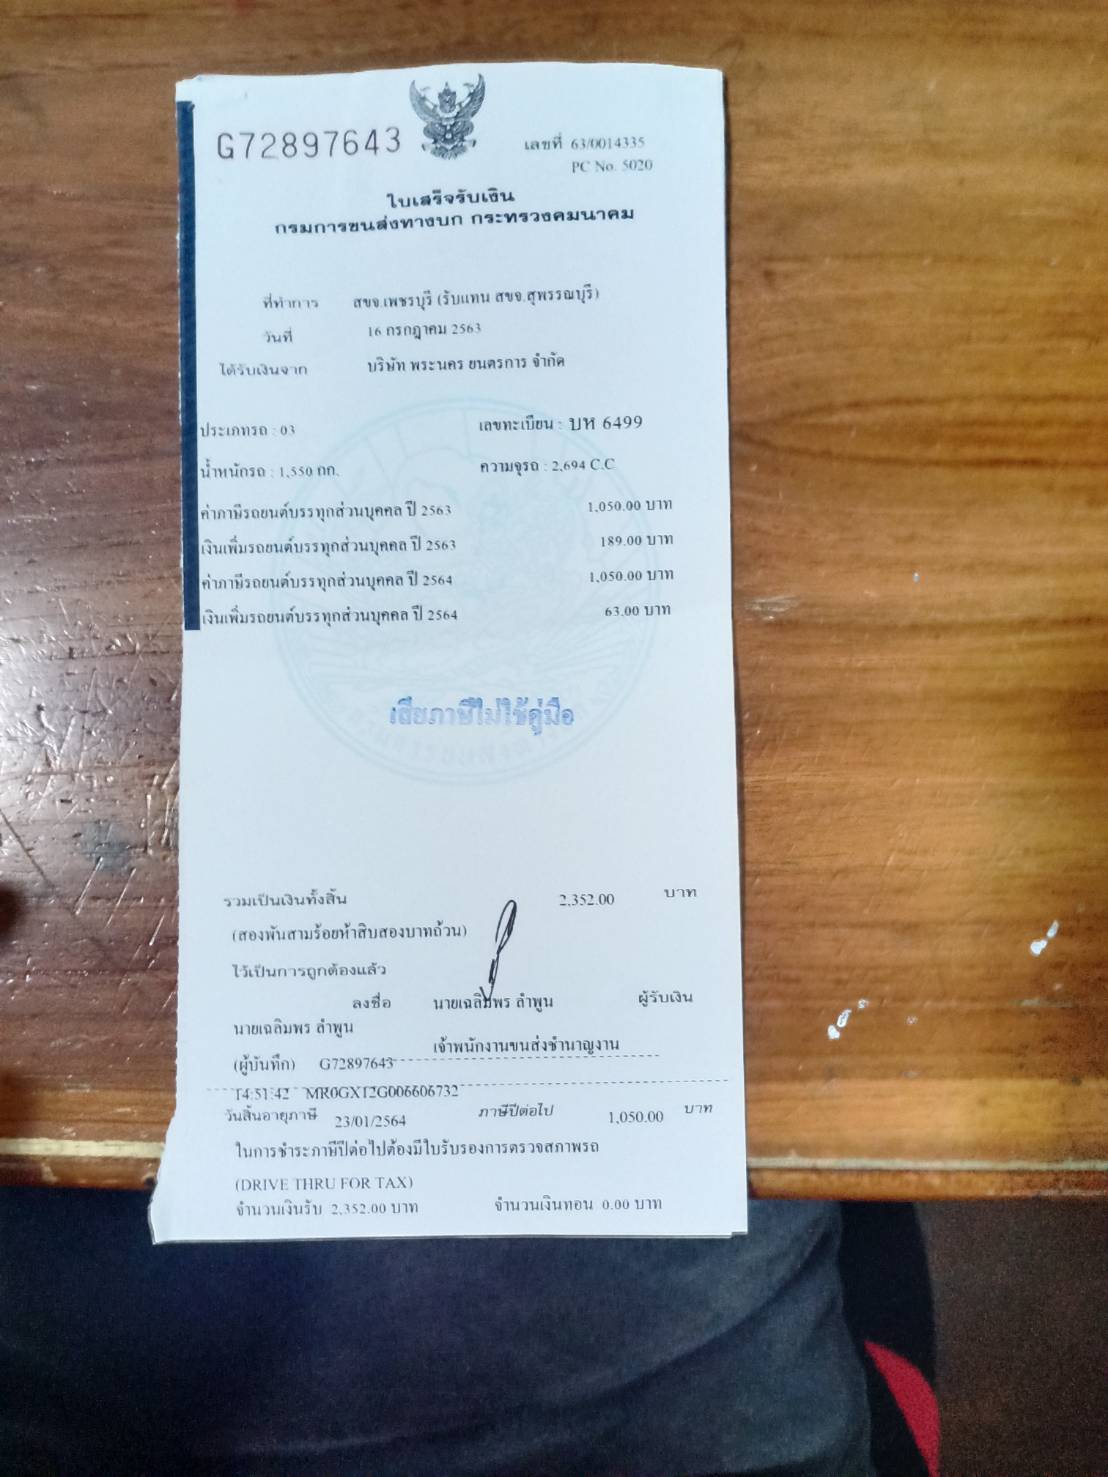 G72897643
เลขที่ 63/0014335
PC No. 5020
ใบเสร็จรับเงิน
กรมการขนส่งทางบก กระทรวงคมนาคม
ที่ทำการ สขจ.เพชรบุรี (รับแทน สขจ.สุพรรณบุรี)
วันที่ 16 กรกฎาคม 2563
ได้รับเงินจาก บริษัท พระนคร ยนตรการ จำกัด
ประเภทรถ : 03 เลขทะเบียน : บห 6499
น้ำหนักรถ : 1,550 กก. ความจุรถ : 2,694 C.C
ค่าภาษีรถยนต์บรรทุกส่วนบุคคล ปี 2563 1,050.00 บาท
เงินเพิ่มรถยนต์บรรทุกส่วนบุคคล ปี 2563 189.00 บาท
ค่าภาษีรถยนต์บรรทุกส่วนบุคคล ปี 2564 1,050.00 บาท
เงินเพิ่มรถยนต์บรรทุกส่วนบุคคล ปี 2564 63.00 บาท
เสียภาษีไม่ใช้คู่มือ
รวมเป็นเงินทั้งสิ้น 2,352.00 บาท
(สองพันสามร้อยห้าสิบสองบาทถ้วน)
ไว้เป็นการถูกต้องแล้ว
ลงชื่อ นายเฉลิมพร ลำพูน ผู้รับเงิน
นายเฉลิมพร ลำพูน
เจ้าพนักงานขนส่งชำนาญงาน
(ผู้บันทึก) G72897643
14:51:42 MR0GX12G006606732
วันสิ้นอายุภาษี 23/01/2564 ภาษีปีต่อไป 1,050.00 บาท
ในการชำระภาษีปีต่อไปต้องมีใบรับรองการตรวจสภาพรถ
(DRIVE THRU FOR TAX)
จำนวนเงินรับ 2,352.00 บาท จำนวนเงินทอน 0.00 บาท